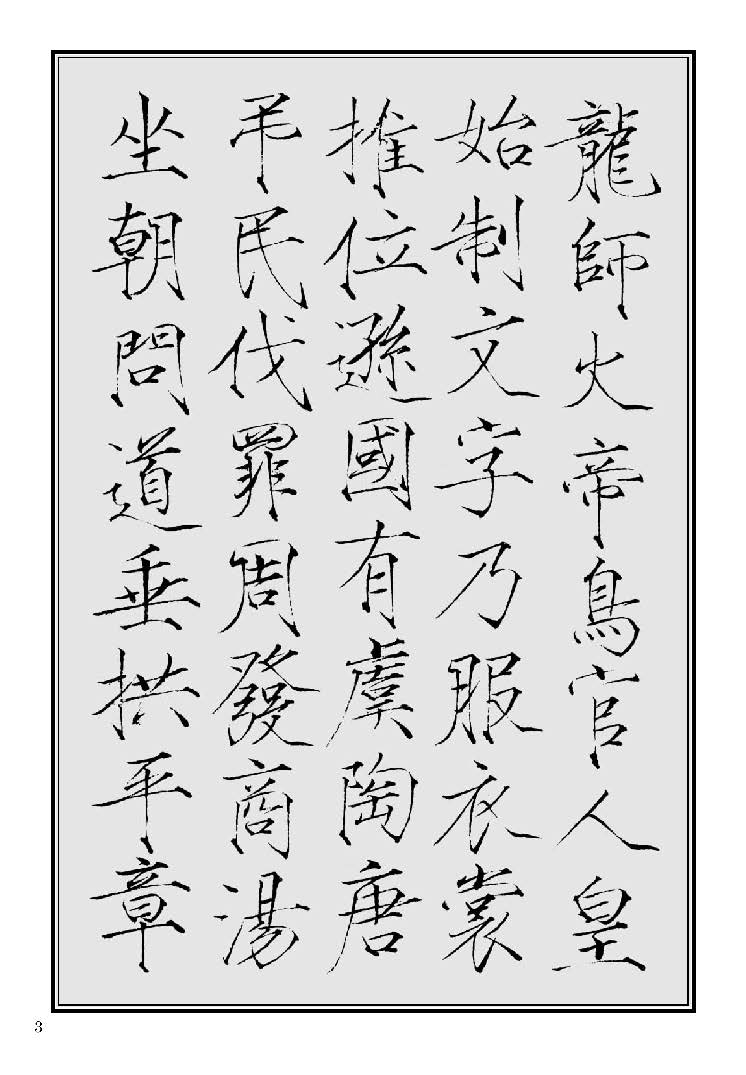 龍師火帝鳥官人皇
始制文字乃服衣裳
推位遜國有虞陶唐
弔民伐罪周發商湯
坐朝問道垂拱平章
3